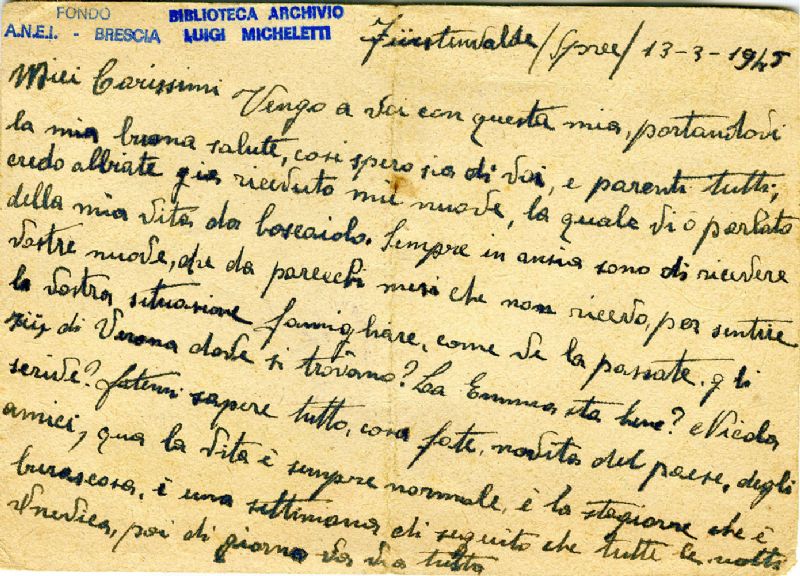 FONDO BIBLIOTECA ARCHIVIO
A.N.E.I. - BRESCIA LUIGI MICHELETTI
Fürstenvalde/Spree/13-3-1945
Miei Carissimi Vengo a voi con questa mia, portandovi
la mia buona salute, così spero sia di voi, e parenti tutti;
credo abbiate già ricevuto mie nuove, la quale vi ò parlato
della mia vita da boscaiolo. Sempre in ansia sono di ricevere
vostre nuove, che da parecchi mesi che non ricevo, per sentire
la vostra situasione famigliare, come ve la passate. gli
zii di Verona dove si trovano? La Emma sta bene? e Nicola
scrive? fatemi sapere tutto, cosa fate, novità del paese, degli
amici, qua la vita è sempre normale, è la stagione che è
burascosa, è una settimana di seguito che tutte le notti
nevica, poi di giorno va via tutta